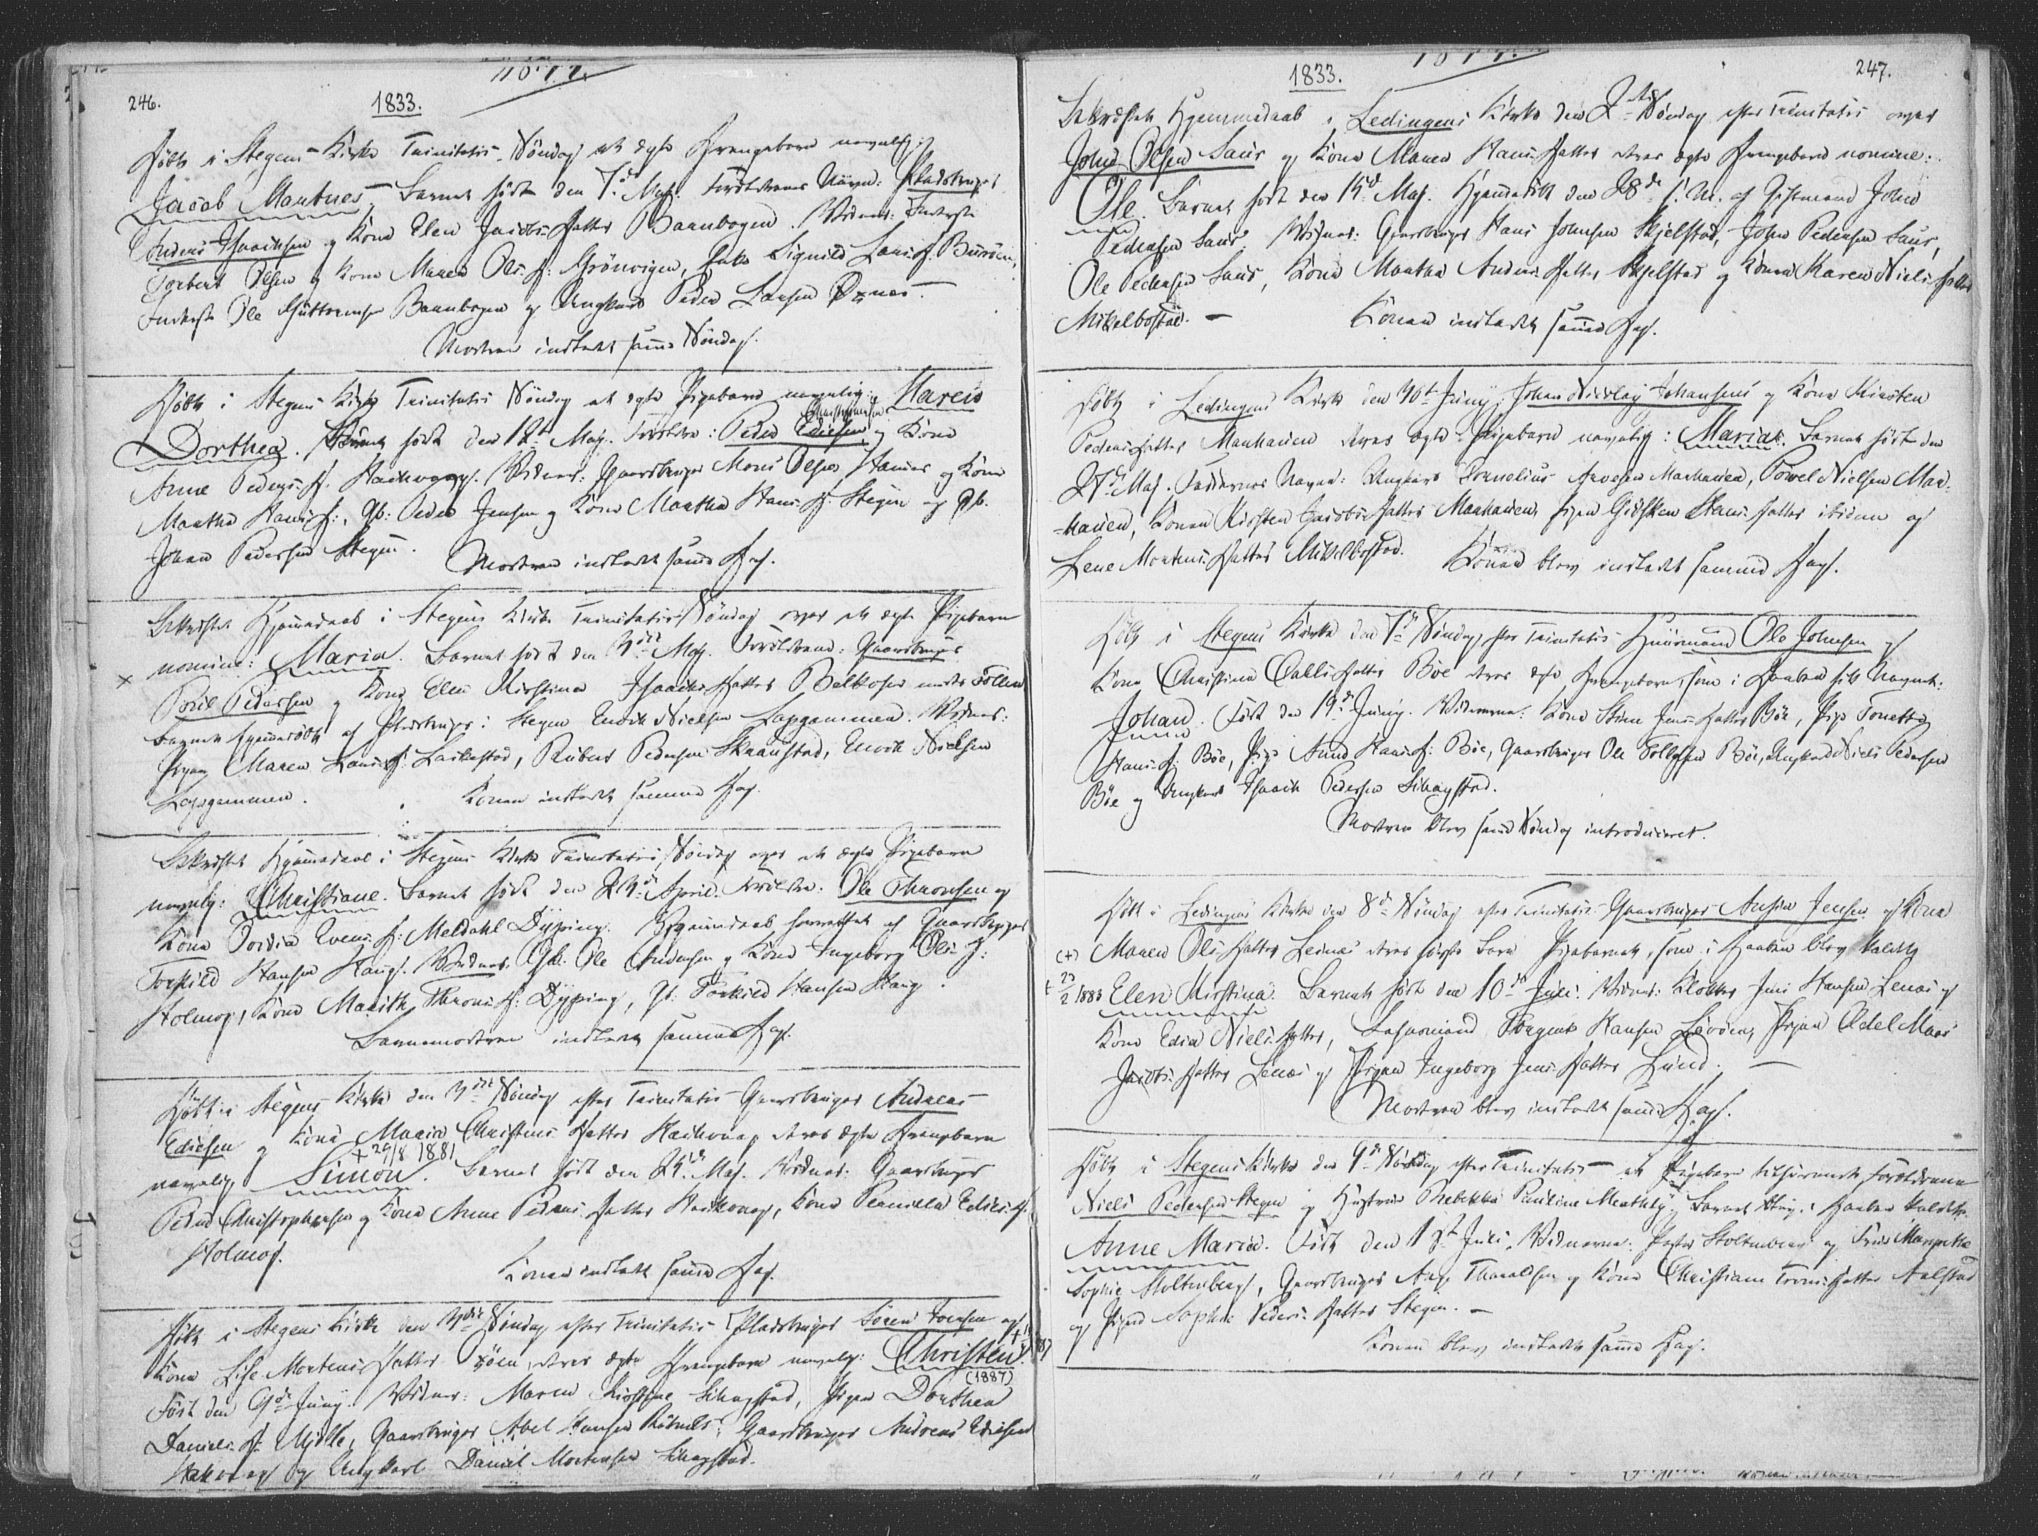 246.
1833.
Døbt i Stegens Kirke Trinitatis Søndag et ægte Drengebarn navnlig:
Jacob Mantnes. Barnet født den 7de Maj. Forældrenes Navne: Pladsbruger
Anders Isaachsen og Kone Elen Jacobs Datter Bannbogen. Vidner: Inderste
Torbert Olsen og Kone Maren Ols: D: Grönvigen, Enke Sigrild Lars: D. Buvöen,
Inderste Ole Guttormsen Bannbogen og Ungkarl Peder Larsen Øxnes.
Moderen indledt samme Søndag.
Døbt i Stegens Kirke Trinitatis Søndag et ægte Pigebarn navnlig: Maren
Dorthea. Barnet født den 12te Maj. Forældre: Peder Christophersen Edisen og Kone
Anne Peders: D. Haakovog. Vidner: Gaardbruger Mons Olsen Hamnes og Kone
Martha Hans: D:, Gb: Peder Jensen og Kone Martha Hans: D: Stegen og Gb.
Johan Pedersen Stegen.
Moderen indledt samme Dag.
Bekræftet Hjemmedaab i Stegens Kirke Trinitatis Søndag over et ægte Pigebarn
nomine: Maria. Barnet født den 3die Maj. Forældrene: Gaardbruger
Poul Pedersen og Kone Elen Kirstina Isaachs Datter Balkosen under Tollen
Barnet hjemmedöbt af Pladsbruger i Stegen Enoch Nielsen Lapgammen. Vidner:
Pigen Maren Lars: D: Laskestad, Rubert Pedersen Skaanstad, Enoch Nielsen
Lapgammen.
Konen indledt samme Dag.
Bekræftet Hjemmedaab i Stegens Kirke Trinitatis Søndag over et ægte Pigebarn
navnlig: Christiane. Barnet født den 23de April. Forældre: Ole Thronsen og
Kone Tordia Evens: D: Meldahl Dyping. Hjemmedaab forrettet af Gaardbruger
Torkild Hansen Haug. Vidner: Gb. Ole Andersen og Kone Ingeborg Ols: D:
Holmog, Kone Marith Throns: D: Dyping, Gb: Torkild Hansen Haug.
Barnemoderen indledt samme Dag.
Døbt i Stegens Kirke den 3die Søndag efter Trinitatis Gaardbruger Andreas
Edisen og Kone Maria Christens Datter Haakovog deres ægte Drengebarn
+ 29/8 1881
navnlig Simon. Barnet født den 23de Maj. Vidner: Gaardbruger
Peder Christophersen og Kone Anne Peders Datter Haakovog, Kone Pernilla Edis: D.
Holmog.
Konen indledt samme Dag.
Døbt i Stegens Kirke den 3die Søndag efter Trinitatis Pladsbruger Sören Joensen og
Kone Lise Mortens Datter Øxöen, deres ægte Drengebarn navnlig: Christen.
(1887)
Født den 9de Juny. Vidner: Maren Kirstine Skagstad, Pigen Dorthea
Daniels: D: Mjölle, Gaardbruger Abel Hansen Rötnes, Gaardbruger Andreas Edisen
Haakovog og Ungkarl Daniel Mortensen Skagstad.
247.
1833.
Bekræftet Hjemmedaab i Ledingens Kirke den 2den Søndag efter Trinitatis over
John Olsen Saur og Kone Maren Hans Datter deres ægte Drengebarn nomine:
Ole. Barnet født den 15de Maj. Hjemmedöbt den 28de s. M. af Giftmand John
Pedersen Saur. Vidner: Gaardbruger Hans Johnsen Skjelstad, John Pedersen Saur,
Ole Pedersen Saur, Kone Martha Anders Datter Skjelstad og Konen Karen Niels Datter
Mikelbostad. —
Konen indledt samme Dag.
Døbt i Ledingens Kirke den 10de Juny Johan Nicolay Johansens og Kone Kirsten
Peders Datter Manhauen deres ægte Pigebarn navnlig: Maria. Barnet født den
27de Maj. Faddernes Navne: Ungkarl Cornelius Arvesen Manhauen, Powel Nielsen Man-
hauen, Konen Kirsten Jacobs Datter Manhauen, Pigen Gidsken Hans Datter ibidem og
Lene Mortens Datter Mikelbostad.
Konen blev indledt samme Dag.
Døbt i Stegens Kirke den 7de Søndag efter Trinitatis Huusmand Ole Johnsen og
Kone Christina Calli Datter Böe deres ægte Drengebarn, som i Daaben fik Navnet:
Johan. Født den 19de Juny. Vidnerne: Kone Stina Jens Datter Böe, Pige Tonette
Hans: D: Böe, Pige Anne Hans: D: Böe, Gaardbruger Ole Tollefsen Böe, Ungkarl Niels Pedersen
Böe og Ungkarl Isaach Pedersen Skagstad.
Moderen blev samme Søndag introduceret.
Døbt i Ledingens Kirke den 8de Søndag efter Trinitatis Gaardbruger Anfin Jensen og Kone
(+) Maren Ols Datter Leines deres første Barn Pigebarnet, som i Daaben blev kaldet
+ 23/2 1883 Elen Kirstina. Barnet født den 10de Juli. Vidner: Klokker Jens Hansen Lenæs og
Kone Edia Niels Datter, Torgeus Hansen Lövöen, Pigen Adel Maria
Jacobs Datter Lenæs og Pigen Ingeborg Jens Datter Lund. —
Moderen blev indledt samme Dag.
Døbt i Stegens Kirke den 9de Søndag efter Trinitatis — et Pigebarn tilhörende Forældrene
Niels Pedersen Stegen og Hustrue Rebekka Pauline Meathly. Barnet blev i Daaben kaldet
Anne Maria. Født den 13de Juli. Vidnerne: Pastor Stoltenberg og Frue Margrethe
Sophie Stoltenberg, Gaardbruger Aage Thoraldsen og Kone Christiane Torris Datter Aalstad
og Pigen Sophie Peders Datter Stegen. —
Konen blev indledt samme Dag.